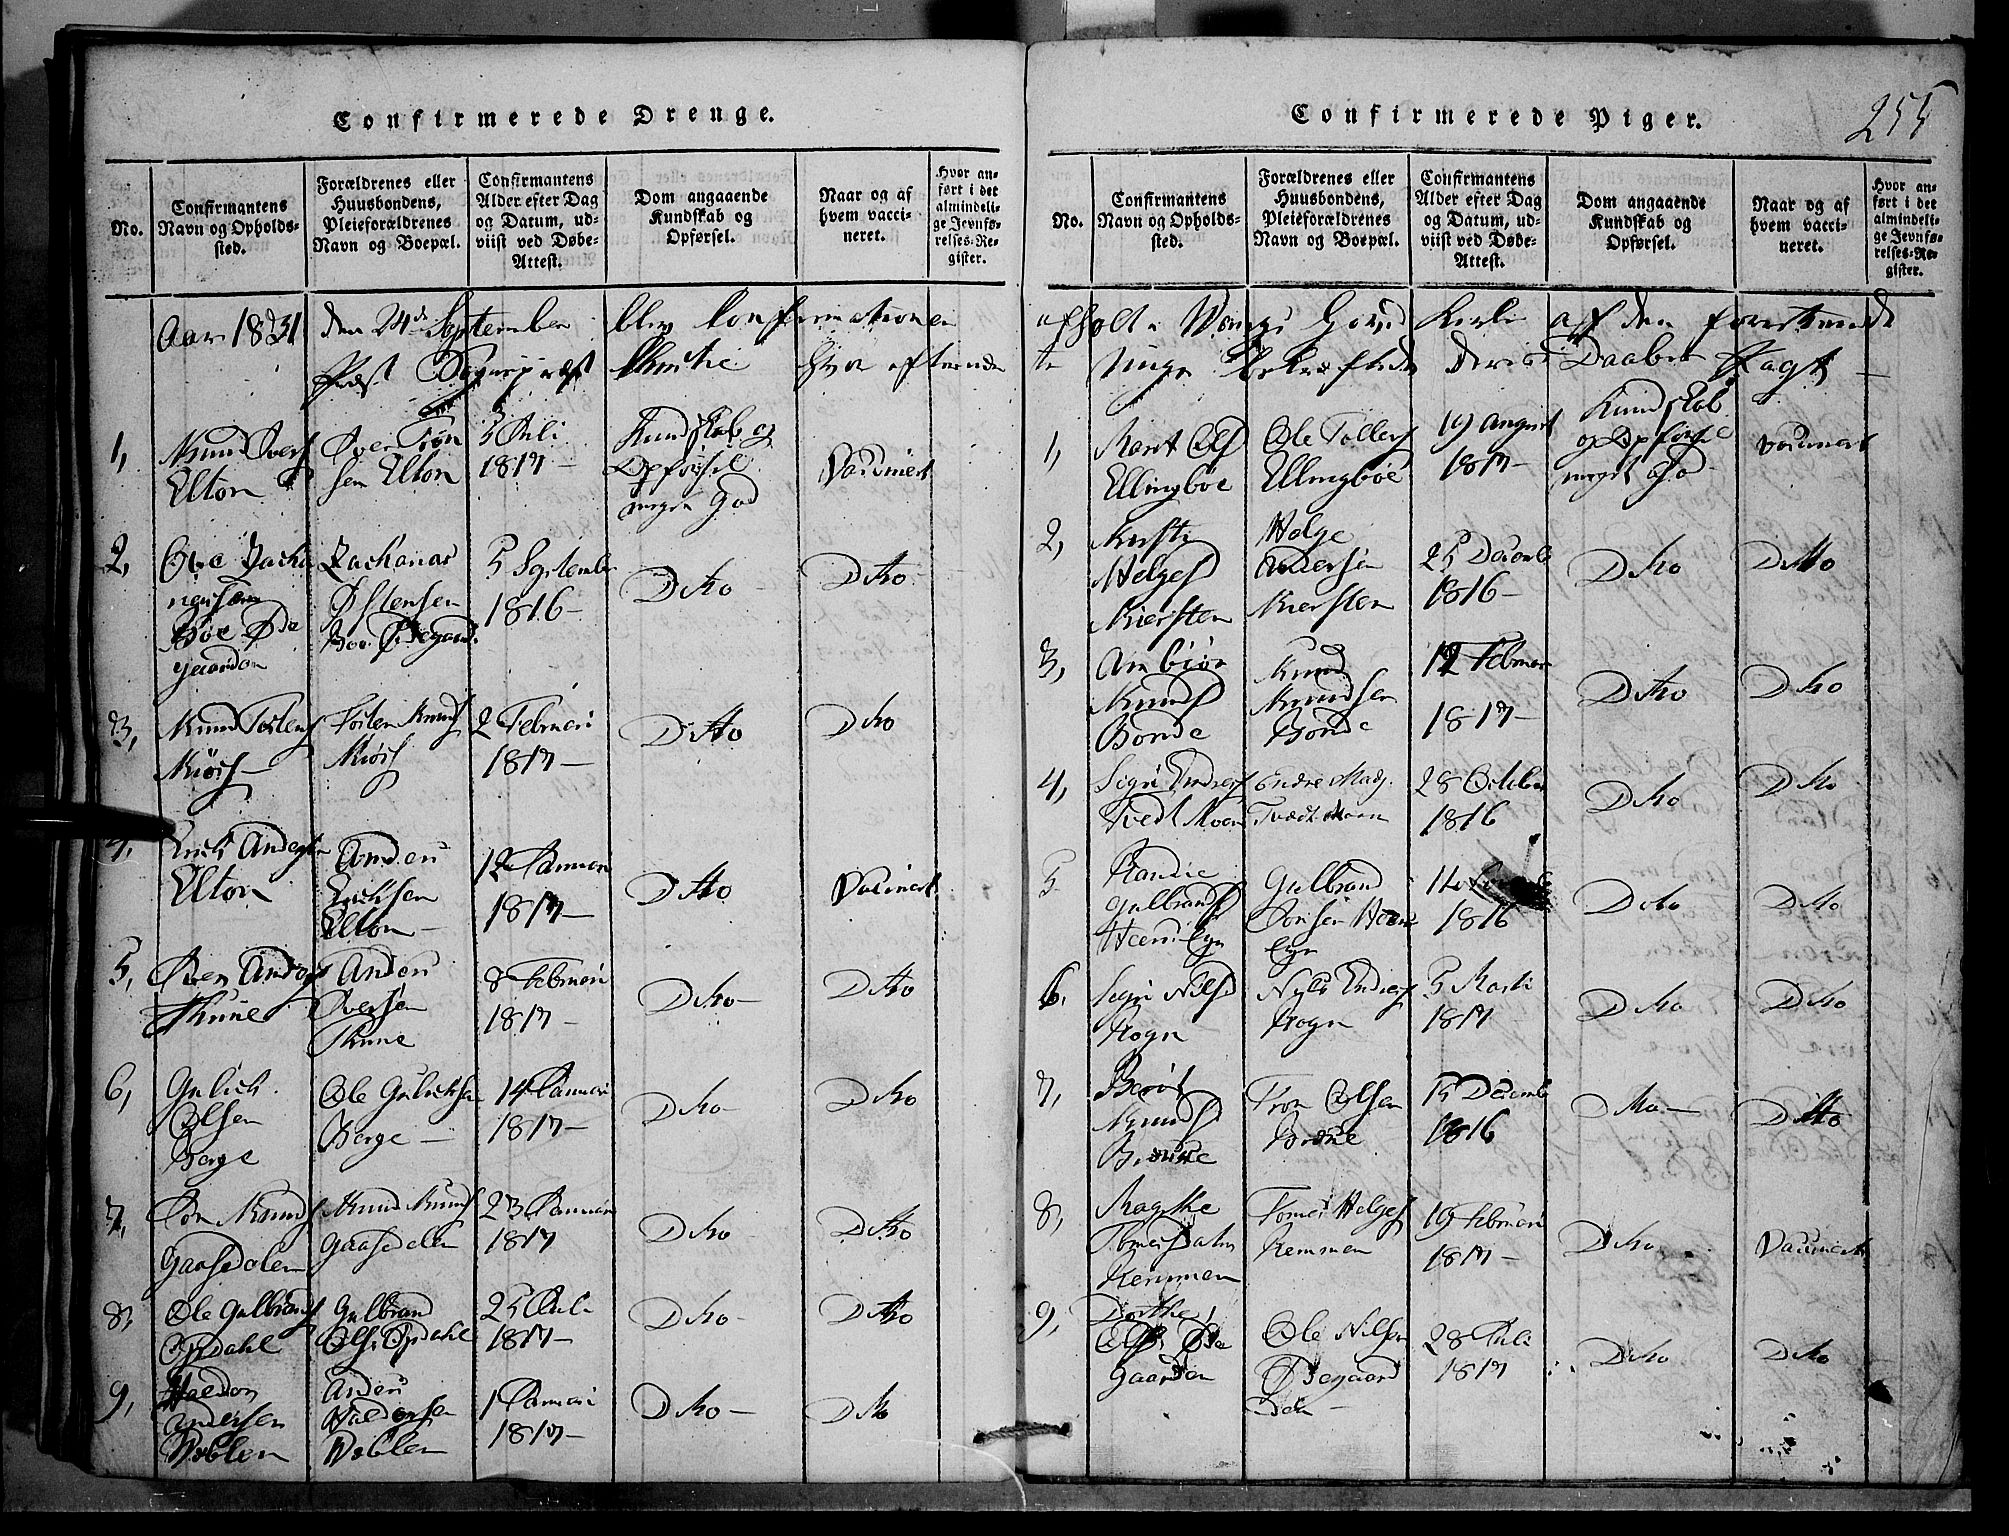 Confirmerede Drenge.
No.
Confirmantens
Navn og Opholds-
sted.
Forældrenes eller
Huusbondens,
Pleieforældrenes
Navn og Boepæl.
Confirmantens
Alder efter Dag
og Datum, ud-
viist ved Døbe-
Attest.
Dom angaaende
Kundskab og
Opførsel.
Naar og af
hvem vacci-
neret.
Hvor an-
ført i det
almindeli-
ge Jevnfø-
relses-Re-
gister.
Aar 1831 den 24de September blev Confirmationen
Præst Christie
1, Knud Ivers Elton
Iver
sen Elton
5 Juli
1817 –
Kundskab og
Opførsel
meget God
Vaccineret
2,
Bøe Øde
gaarden
Zacharias
Østensen
Boe Ødegaard
5 September
1816 –
Ditto
Ditto
3, Knud Tostens
Kiørs –
Tosten Knuds
Kiørs
2 Februari
1817 –
Ditto
Ditto
4, Erich Anders
Elton
Anders
Erichsen
Elton –
12 Januari
1817 –
Ditto
Vaccineret
5, Iver Anders
Thune
Anders
Iversen
Thune
8 Februari
1817 –
Ditto –
Ditto
6, Gulich
Olsen
Berge
Ole Gulichsen
Berge –
14 Januari
1817 –
Ditto –
Ditto
7, Knuds
Gaasedelen
Knud Knuds
Gaasedelen
23 Januari
1817
Ditto –
Ditto
8, Ole Gulbrands
Opdahl
Gulbrand
Ols: Opdahl
25 Juli
1817 –
Ditto –
Ditto
9, Haldor
Andersen
Døblen
Anders
Haldorsen
Døblen
1 Januari
1817 –
Ditto –
Ditto
Confirmerede Piger.
255
No.
Confirmantens
Navn og Opholds-
sted.
Forældrenes eller
Huusbondens,
Pleieforældrenes
Navn og Boepæl.
Confirmantens
Alder efter Dag
og Datum, ud-
viist ved Døbe-
Attest.
Dom angaaende
Kundskab og
Opførsel.
Naar og af
hvem vacci-
neret.
Hvor an-
ført i det
almindeli-
ge Jevnfø-
relses-Re-
gister.
afholt i Kirke af den
Unge bekræftede deris Daabes Pagt –
1, Marit Olsd
Ellingbøe
Ole Tollefs
Ellingbøe
19 August
1817 –
Kundskab
og Opførsel
meget God
Vaccineret
2, Kirsti
Helgesd
Kiersten
Helge
Andersen
Kiersten
25 Decemb
1816 –
Ditto
Ditto
3, Anbiør
Knudsd
Bonde
Knud
Knudsen
Bonde
12 Februari
1817 –
Ditto
Ditto
4, Sigri Endres
Tvedt Moen
Endre Mads
Tvedt Moen
28 October
1816
Ditto
Ditto
5 Randie
Gulbrandsd
Gulbrand
14
1816
Ditto
Ditto
6, Sigri Nilsd
Rogn
Nils Endres
Rogn
5 Marti
1817
Ditto
Ditto
7, Berøt
Olsen
15 Decemb
1816
Ditto –
Ditto
8,
Remmen
Helges
Remmen
19 Februari
1817 –
Ditto
Vaccineret
9, Dorthe
Ols: Øde
Gaarden
Ole Nilsen
Ødegaard
den –
28 Juli
1817
Ditto
Ditto